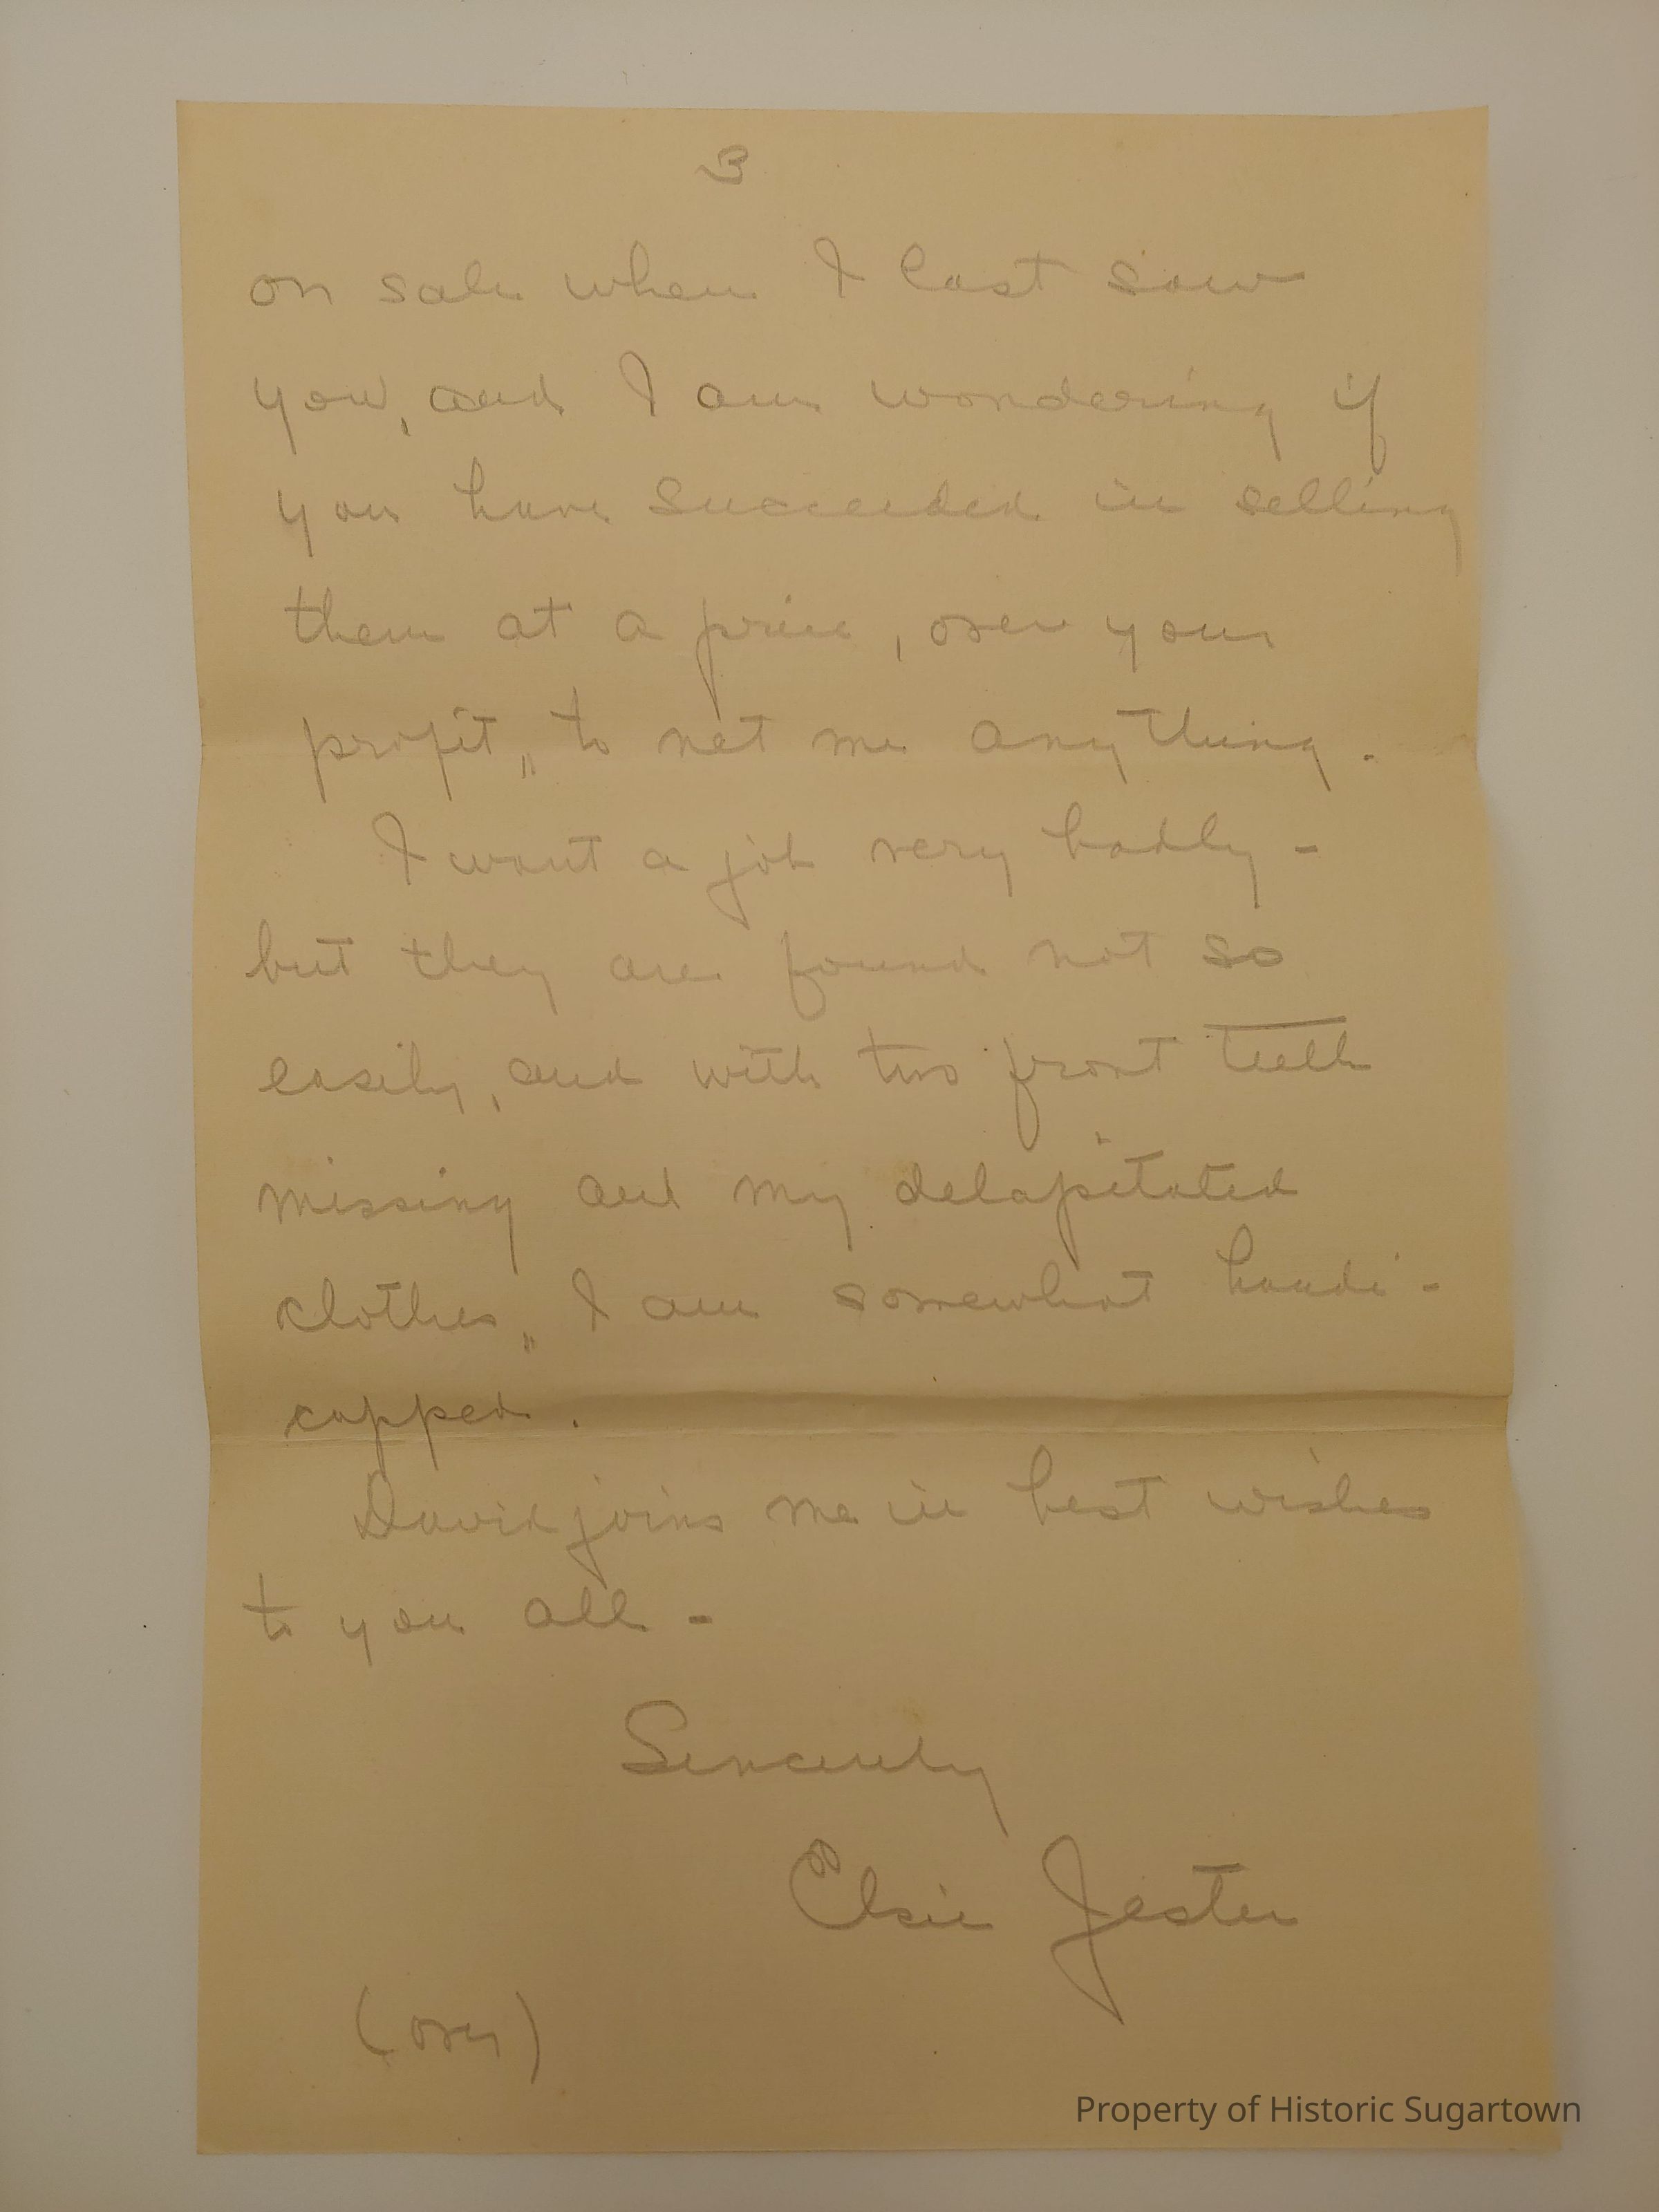 3
on sale when I last saw
you, and I am wondering if
you have succeeded in selling
them at a price, over your
profit,, to net me anything.
I want a job very badly -
but they are found not so
easily, and with two front teeth
missing and my delapitated
clothes,, I am somewhat handi-
capped.
David joins me in best wishes
to you all -
Sincerely
Elsie Jester
(over)
Property of Historic Sugartown